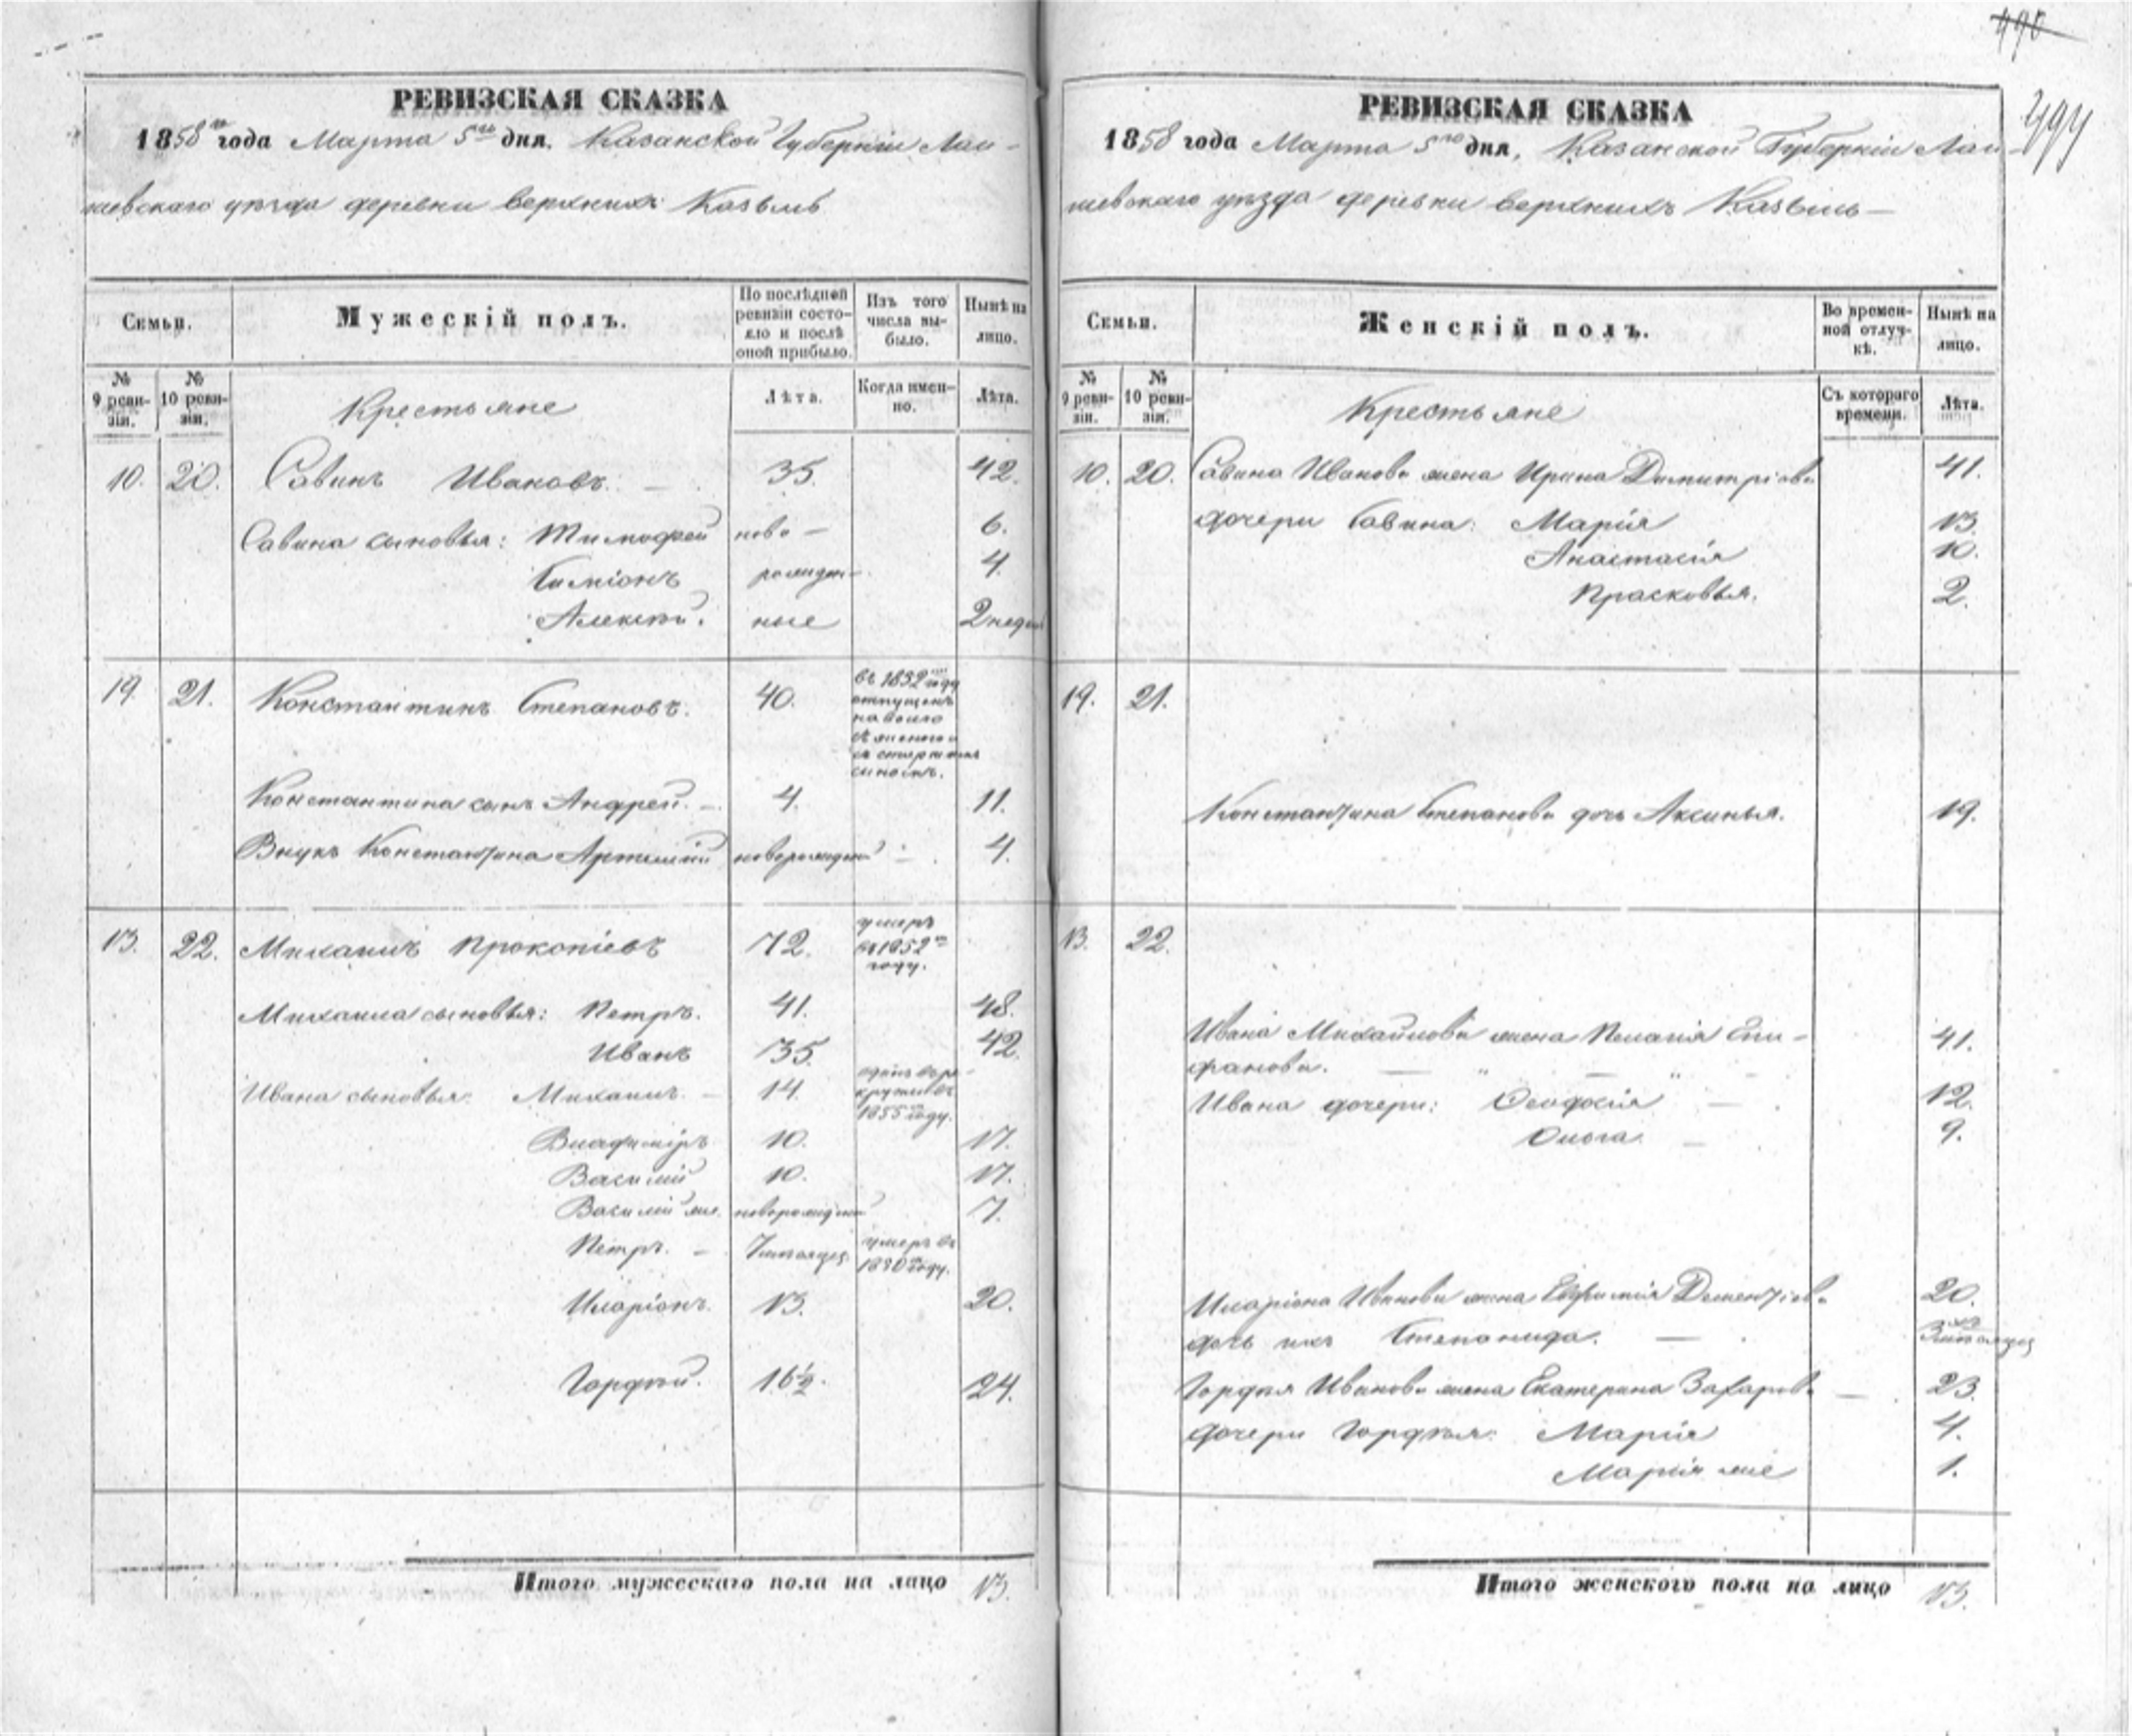 490
494
РЕВИЗСКАЯ СКАЗКА
1858го года Марта 5го дня, Казанской Губерніи Лаи-
шевскаго уѣзда деревни верхнихъ Казыль
Семьи.
Мужескій полъ.
По послѣдней ревизіи состо-яло и послѣ оной прибыло.
Изъ того числа вы-было.
Нынѣ на лицо.
№ 9 реви-зіи.
№ 10 реви-зіи.
Крестьяне
Лѣта.
Когда имен-но.
Лѣта.
10. 20. Савинъ Ивановъ. 35. 42.
Савина сыновья: Тимофей ново- 6.
Симіонъ рожден- 4.
Алексѣй. ные 2 недѣл
19. 21. Константинъ Степановъ. 40. въ 1852мъ году
отпущенъ
на волю
съ женою и
съ старшимъ
сыномъ.
Константина сынъ Андрей. 4. 11.
Внукъ Константина Артемій новорожден 4.
13. 22. Михаилъ Прокопіевъ 72. умеръ
въ 1852м
году.
Михаила сыновья: Петръ. 41. 48.
Иванъ 35. 42.
Ивана сыновья: Михаилъ. 14. отданъ въ ре-
крути въ
1855 году.
Владиміръ 10. 17.
Василій 10. 17.
Василій же. новорожден 7.
Петръ. 7 мѣсяцев умеръ въ
1850 году.
Иларіонъ. 13. 20.
Гордѣй. 16½. 24.
Итого мужескаго пола на лицо 13.
РЕВИЗСКАЯ СКАЗКА
1858 года Марта 5го дня, Казанской Губерніи Лаи-
шевскаго уѣзда деревни верхнихъ Казыль
Семьи.
Женскій полъ.
Во времен-ной отлуч-кѣ.
Нынѣ на лицо.
№ 9 реви-зіи.
№ 10 реви-зіи.
Крестьяне
Съ котораго времени.
Лѣта.
10. 20. Савина Иванова жена Ирина Димитріева 41.
дочери Савина: Марія 13.
Анастасія 10.
Прасковья. 2.
19. 21.
Константина Степанова дочь Аксинья. 19.
13. 22.
Ивана Михайлова жена Пелагія Епи-
фанова. 41.
Ивана дочери: Ѳеодосія 12.
Ольга 9.
Иларіона Иванова жена Евфимія Дементіева 20.
дочь ихъ Степанида. 3хъ мѣсяцев
Гордѣя Иванова жена Екатерина Захарова 23.
дочери Гордѣя: Марія 4.
Марія же 1.
Итого женскаго пола на лицо 13.